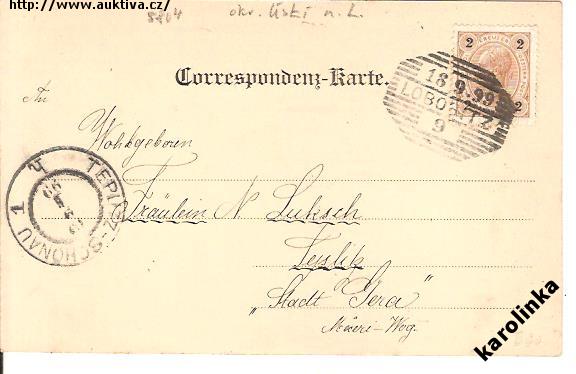 http://www.auktiva.cz/
5804
okr. Ústí n. L.
2 2
2
Correspondenz-Karte.
18.9.99
LOBOSITZ
9
An
Wohlgeboren
Fräulein N. Luksch
Teplitz
„Stadt Gera“
TEPLITZ-SCHÖNAU 1
karolinka